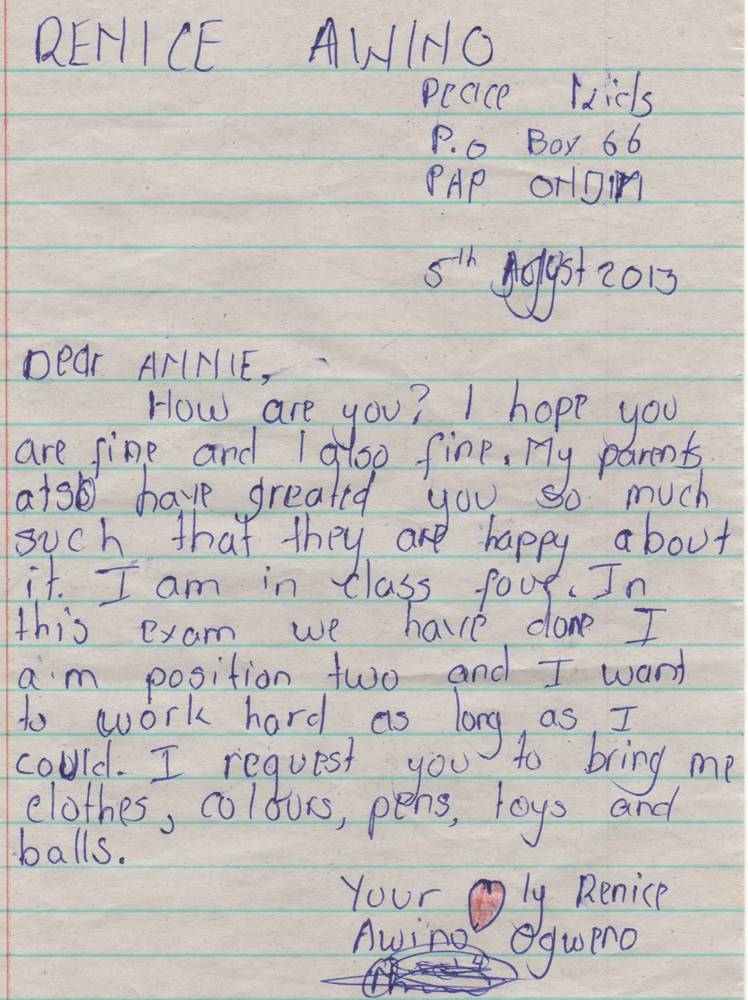 RENICE AWINO
Peace Kids
P.o Box 66
PAP ONDIM
5th August 2013
Dear ANNIE,
How are you? I hope you
are fine and I also fine. My parents
also have greated you so much
such that they are happy about
it. I am in class four. In
this exam we have done I
a.m position two and I want
to work hard as long as I
could. I request you to bring me
clothes, colours, pens, toys and
balls.
Your ly Renice
Awino Ogweno